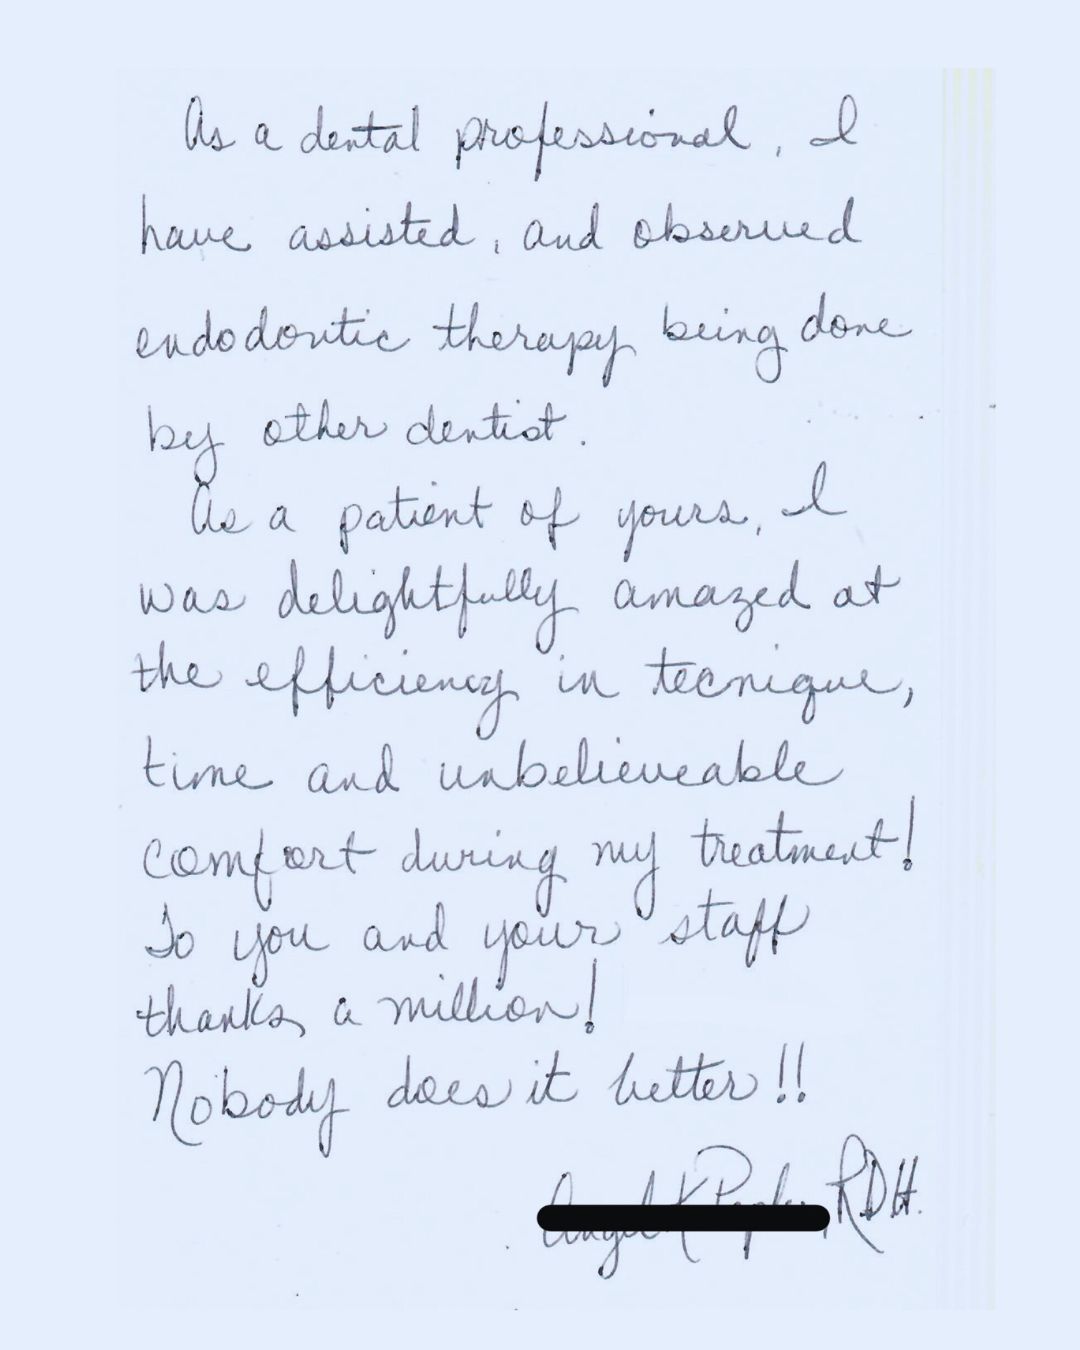 As a dental professional, I
have assisted, and observed
endodontic therapy being done
by other dentist.
As a patient of yours, I
was delightfully amazed at
the efficiency in tecnique,
time and unbelieveable
comfort during my treatment!
To you and your staff
thanks a million!
Nobody does it better!!
RDH.